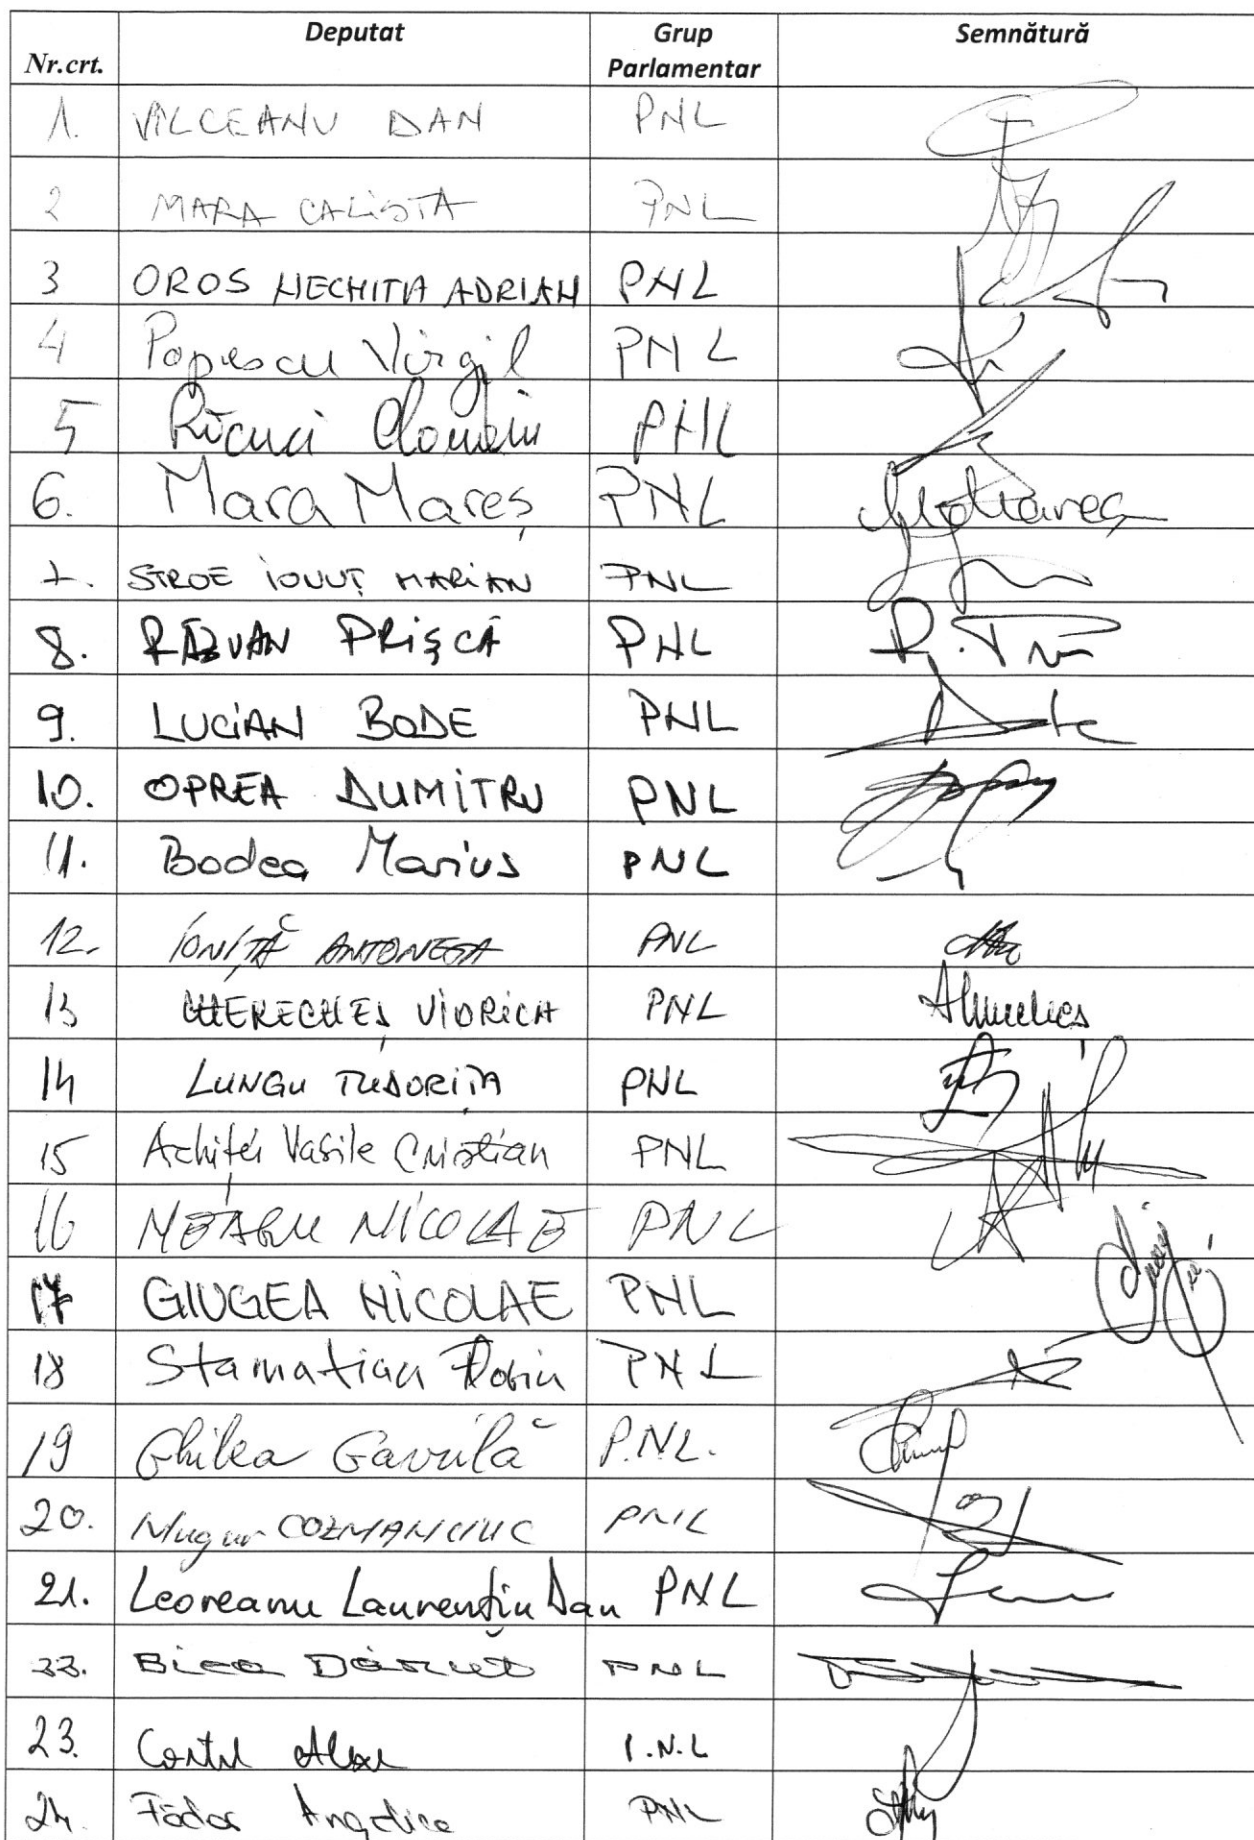 Nr.crt. Deputat Grup Parlamentar Semnătură
1. VÎLCEANU DAN PNL
2 MARA CALISTA PNL
3 OROS NECHITA ADRIAN PNL
4 Popescu Virgil PNL
5 PNL
6. Mara Mareș PNL
7. STROE IONUȚ MARIAN PNL
8. RĂZVAN PRIȘCĂ PNL
9. LUCIAN BODE PNL
10. OPREA DUMITRU PNL
11. Bodea Marius PNL
12. IONIȚĂ ANTONETA PNL
13 CHERECHEȘ VIORICA PNL
14 LUNGU TUDORIȚA PNL
15 Achiței Vasile Cristian PNL
16 NEAGU NICOLAE PNL
17 GIUGEA NICOLAE PNL
18 Stamatian Florin PNL
19 Ghilea Gavrilă P.N.L.
20. Mugur COZMANCIUC PNL
21. Leoreanu Laurențiu Dan PNL
22. Bica Dănuț PNL
23. P.N.L
24. Fădor Angelica PNL